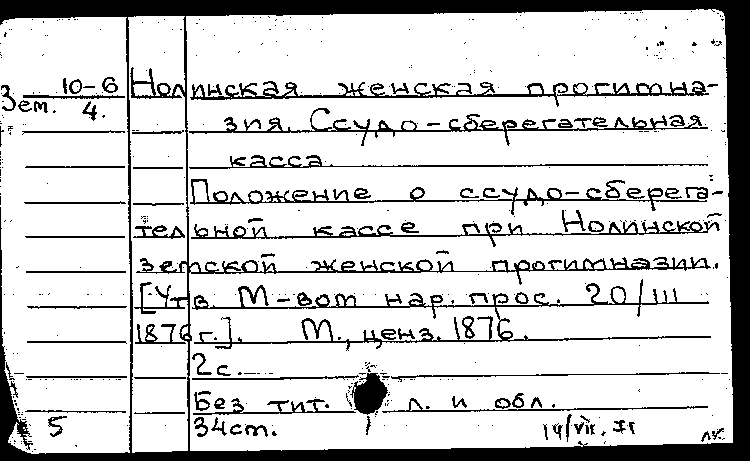 10-6 Нолинская женская прогимна-
Зем. 4. зия. Ссудо-сберегательная
касса.
Положение о ссудо-сберега-
тельной кассе при Нолинской
земской женской прогимназии.
[Утв. М-вом нар. прос. 20/III
1876 г.]. М., ценз. 1876.
2с.
Без тит. л. и обл.
5 34см.
14/VII.